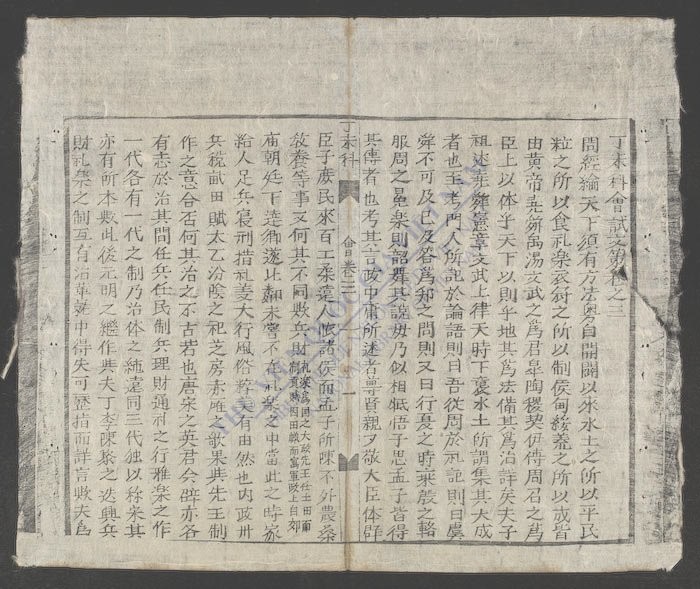 丁未科會試文第卷之三
問經綸天下須有方法奧自開闢以來水土之所以平民
粒之所以食礼楽衣裳之所以制侯甸綏羞之所以成皆
由黄帝尭舜禹湯文武之為君皐陶稷契伊傅周召之為
臣上以体乎天下以則乎地其為法備其為治詳矣夫子
祖述尭舜憲章文武上律天時下襲水土所謂集其大成
者也王考門人所記於論語則曰吾從周於礼記則曰虞
舜不可及已及答為邦之問則又曰行夏之時乗殷之輅
服周之冕楽則韶舞其說毋乃似相牴悟子思孟子皆得
其傳者也考其言政中庸所述者尊賢親親敬大臣体群
丁未科 會卷三 一
臣子庶民來百工柔遠人懷諸侯而孟子所陳不外農桑
教養等事又何其不同歟兵財礼楽為國之大政先王仕土田甫制賣賦因田賦而寓軍政上自郊
廟朝廷下達鄉遂比閭未嘗不在礼楽之中當此之時家
給人足兵寝刑措礼楽大行風俗粹美有由然也内政州
兵稅畝田賦太乙汾陰之祀芝房赤雁之歌果與先王制
作之意合否何其治之不古若也唐宋之英君令辟亦各
有志於治其間任兵任民制兵理財通礼之行雅楽之作
一代各有一代之制乃治体之純遠同三代独以称宋其
亦有所本歟此後元明之継作與夫丁李陳黎之迭興兵
財礼楽之制互有沿革就中得失可歴指而詳言歟夫為